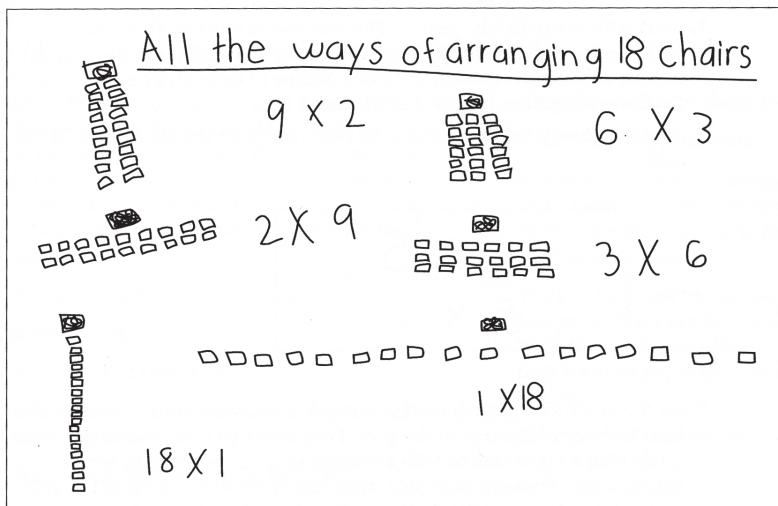 All the ways of arranging 18 chairs
9 X 2
6 X 3
2 X 9
3 X 6
1 X18
18 X 1